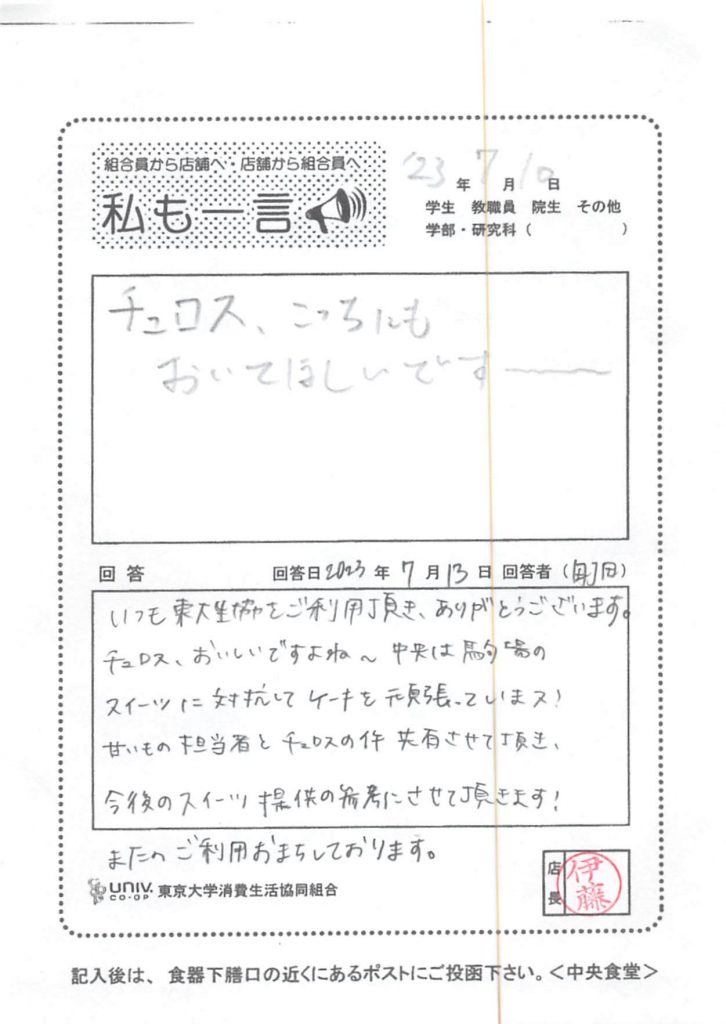 組合員から店舗へ・店舗から組合員へ
私も一言
'23 年 7 月 10 日
学生 教職員 院生 その他
学部・研究科( )
チュロス、こっちにも
おいてほしいです〜
回答
回答日2023年 7月13日 回答者( )
いつも東大生協をご利用頂き、ありがとうございます。
チュロス、おいしいですよね〜 中央は駒場の
スイーツに対抗してケーキを頑張っていまス!
甘いもの担当者とチュロスの件共有させて頂き、
今後のスイーツ提供の参考にさせて頂きます!
またのご利用おまちしております。
店長
伊藤
UNIV. CO-OP 東京大学消費生活協同組合
記入後は、食器下膳口の近くにあるポストにご投函下さい。<中央食堂>